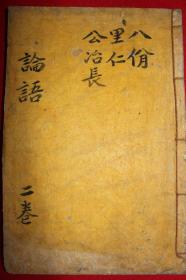 八佾
里仁
公冶長
論語 二卷